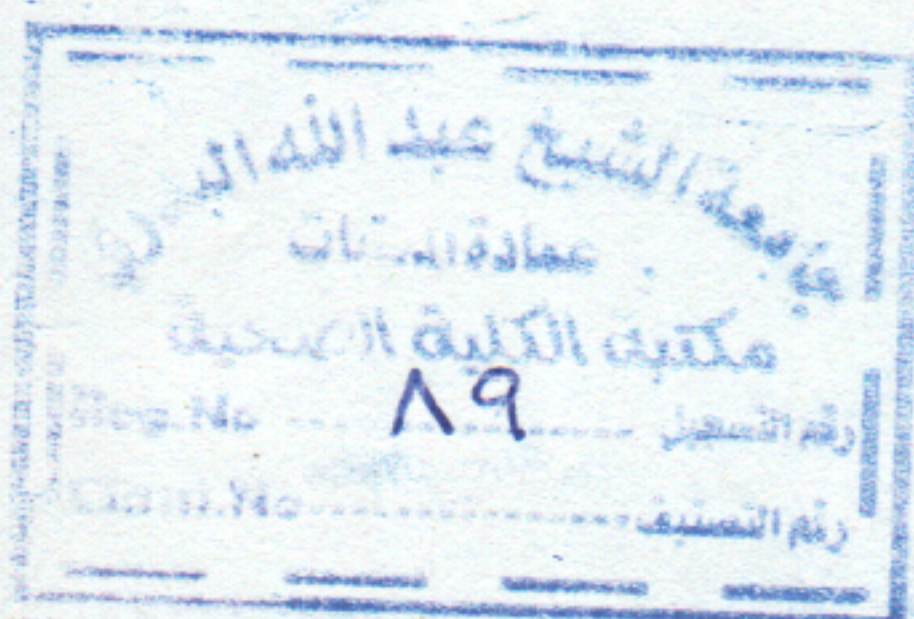 جامعة الشيخ عبد الله البدري
عمادة المكتبات
مكتبة الكلية الصحية
رقم التسجيل ٨٩ Reg.No
رقم التصنيف